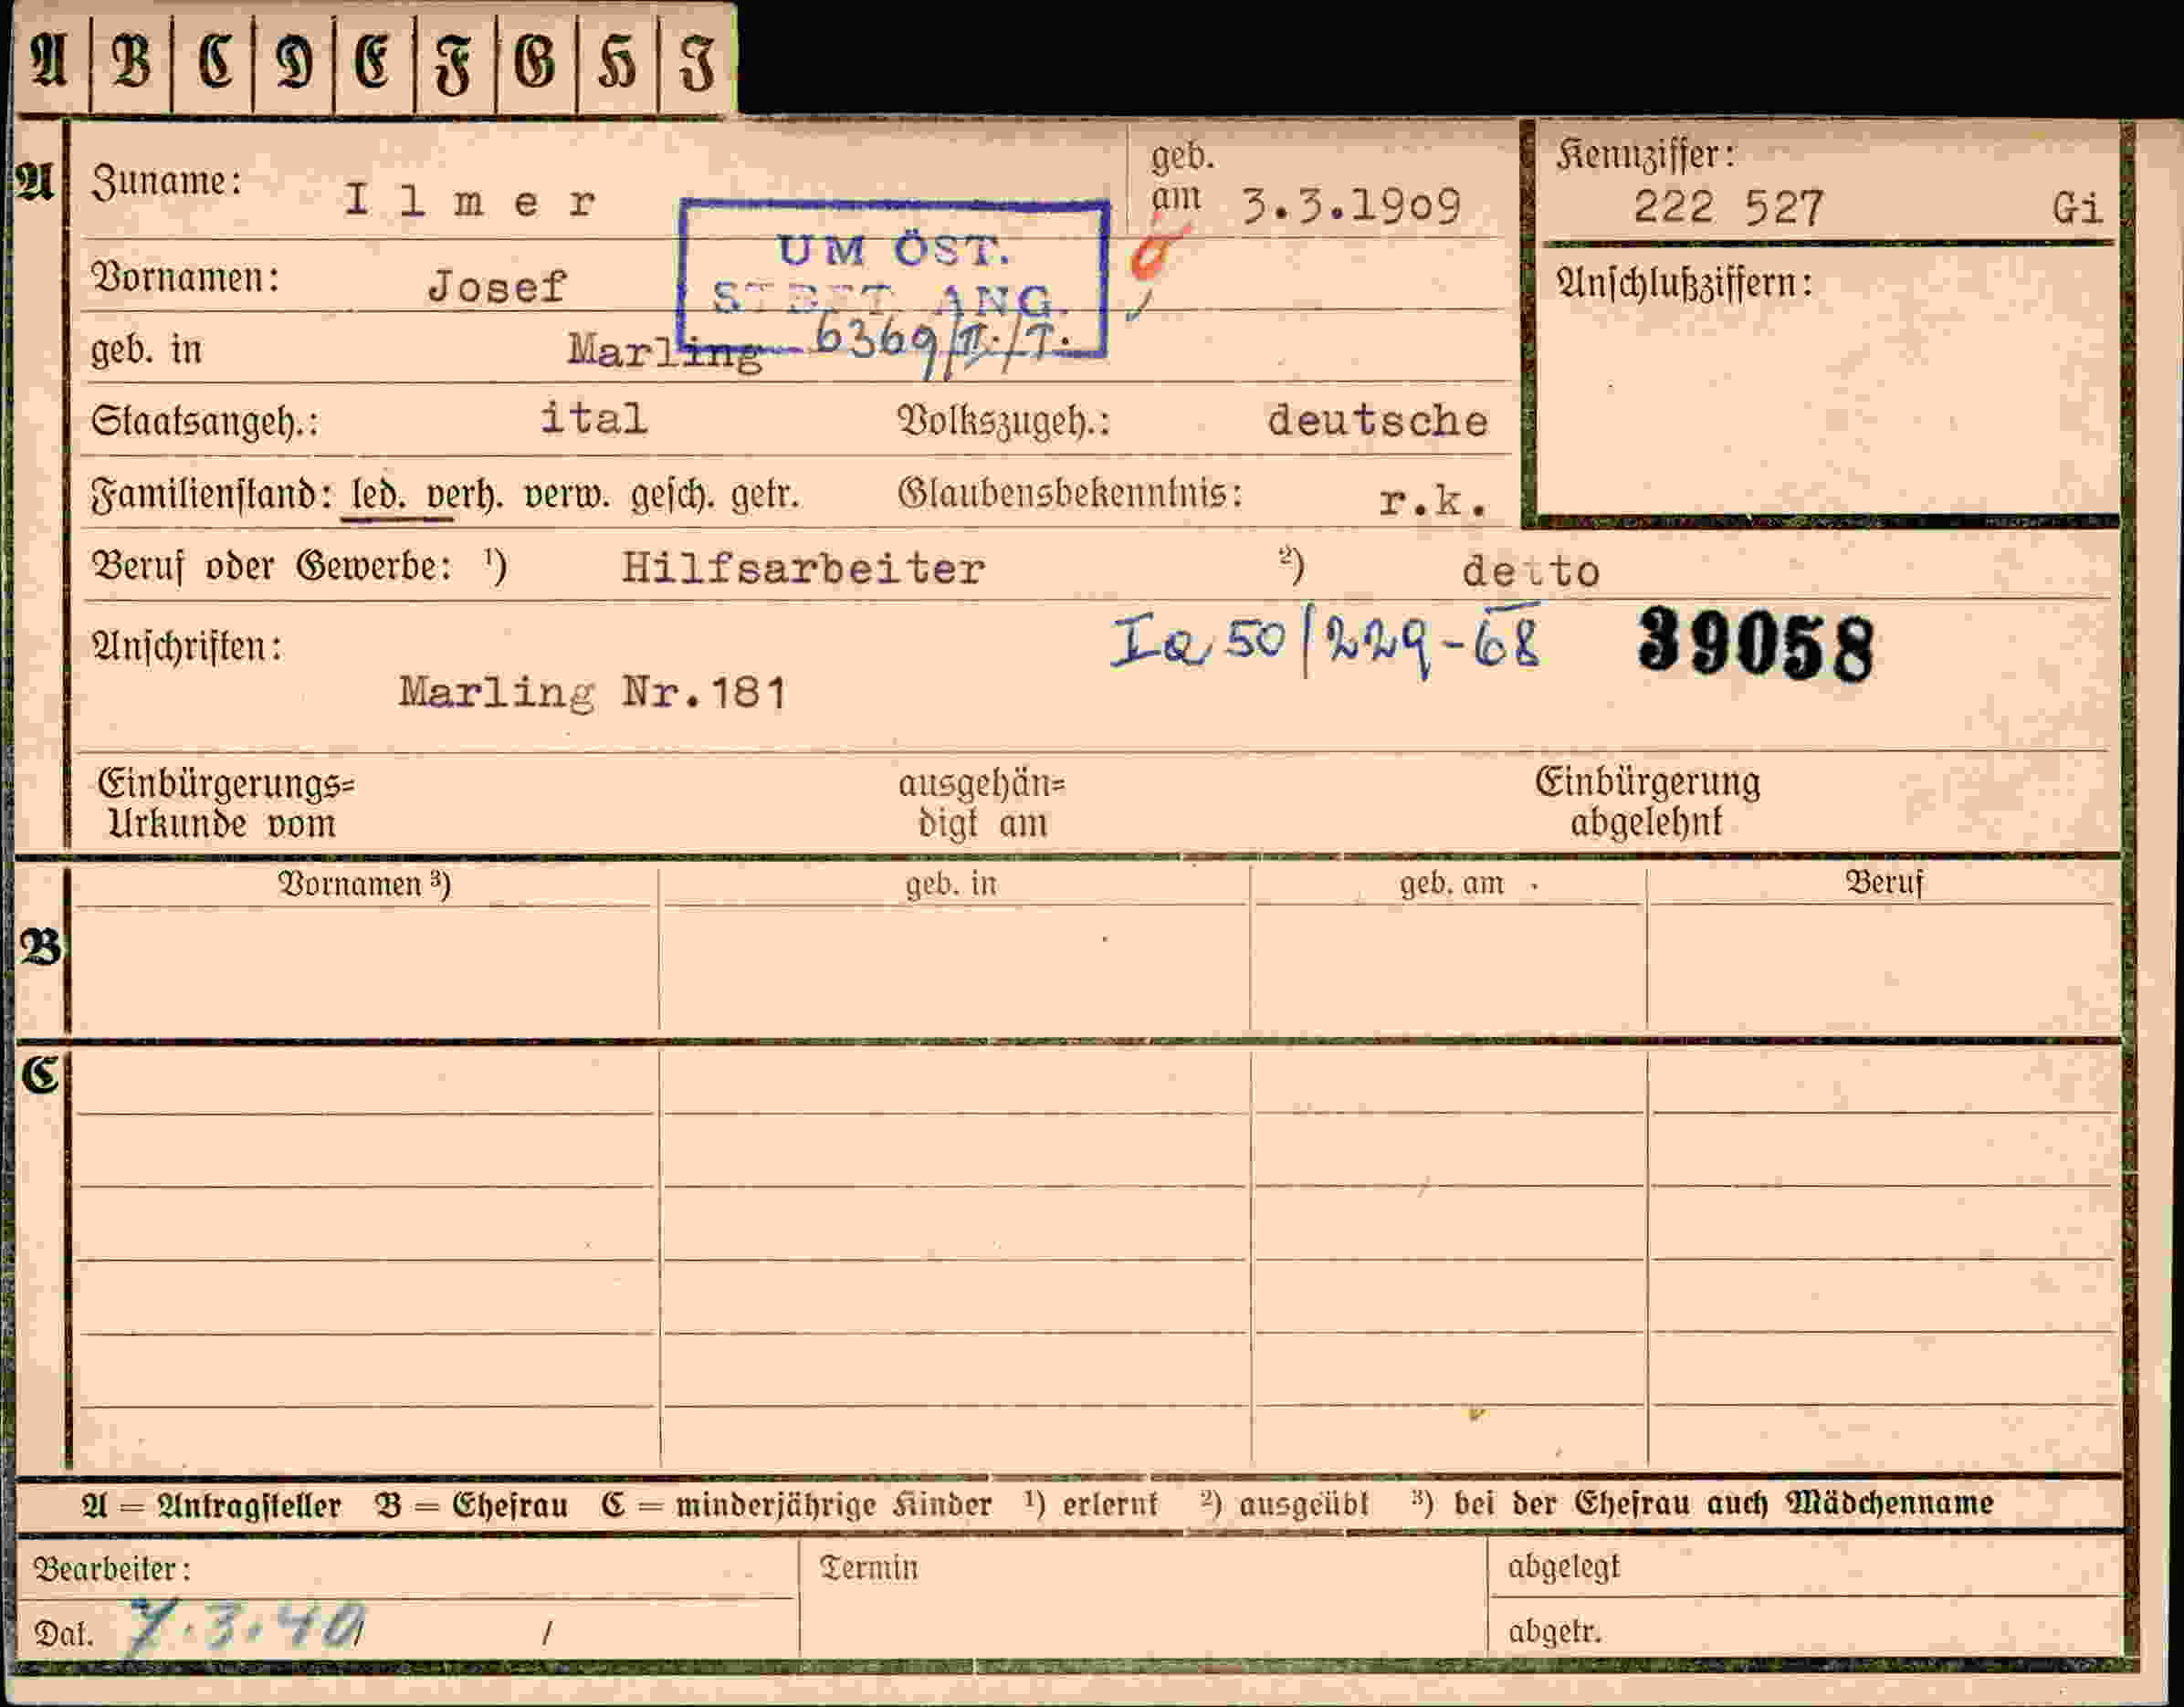 A B C D E F G H I
A Zuname: Ilmer geb. am 3.3.1909 Kennziffer: 222 527 Gi
UM ÖST.
Vornamen: Josef ANG. Anschlußziffern:
geb. in Marling 6369/II./T.
Staatsangeh.: ital Volkszugeh.: deutsche
Familienstand: led. verh. verw. gesch. getr. Glaubensbekenntnis: r.k.
Beruf oder Gewerbe: ¹) Hilfsarbeiter ²) detto
Anschriften: Ia 50/229-68 39058
Marling Nr.181
Einbürgerungs= ausgehän= Einbürgerung
Urkunde vom digt am abgelehnt
Vornamen ³) geb. in geb. am Beruf
B
C
A = Antragsteller B = Ehefrau C = minderjährige Kinder ¹) erlernt ²) ausgeübt ³) bei der Ehefrau auch Mädchenname
Bearbeiter: Termin abgelegt
Dat. 7.3.40/ / abgetr.